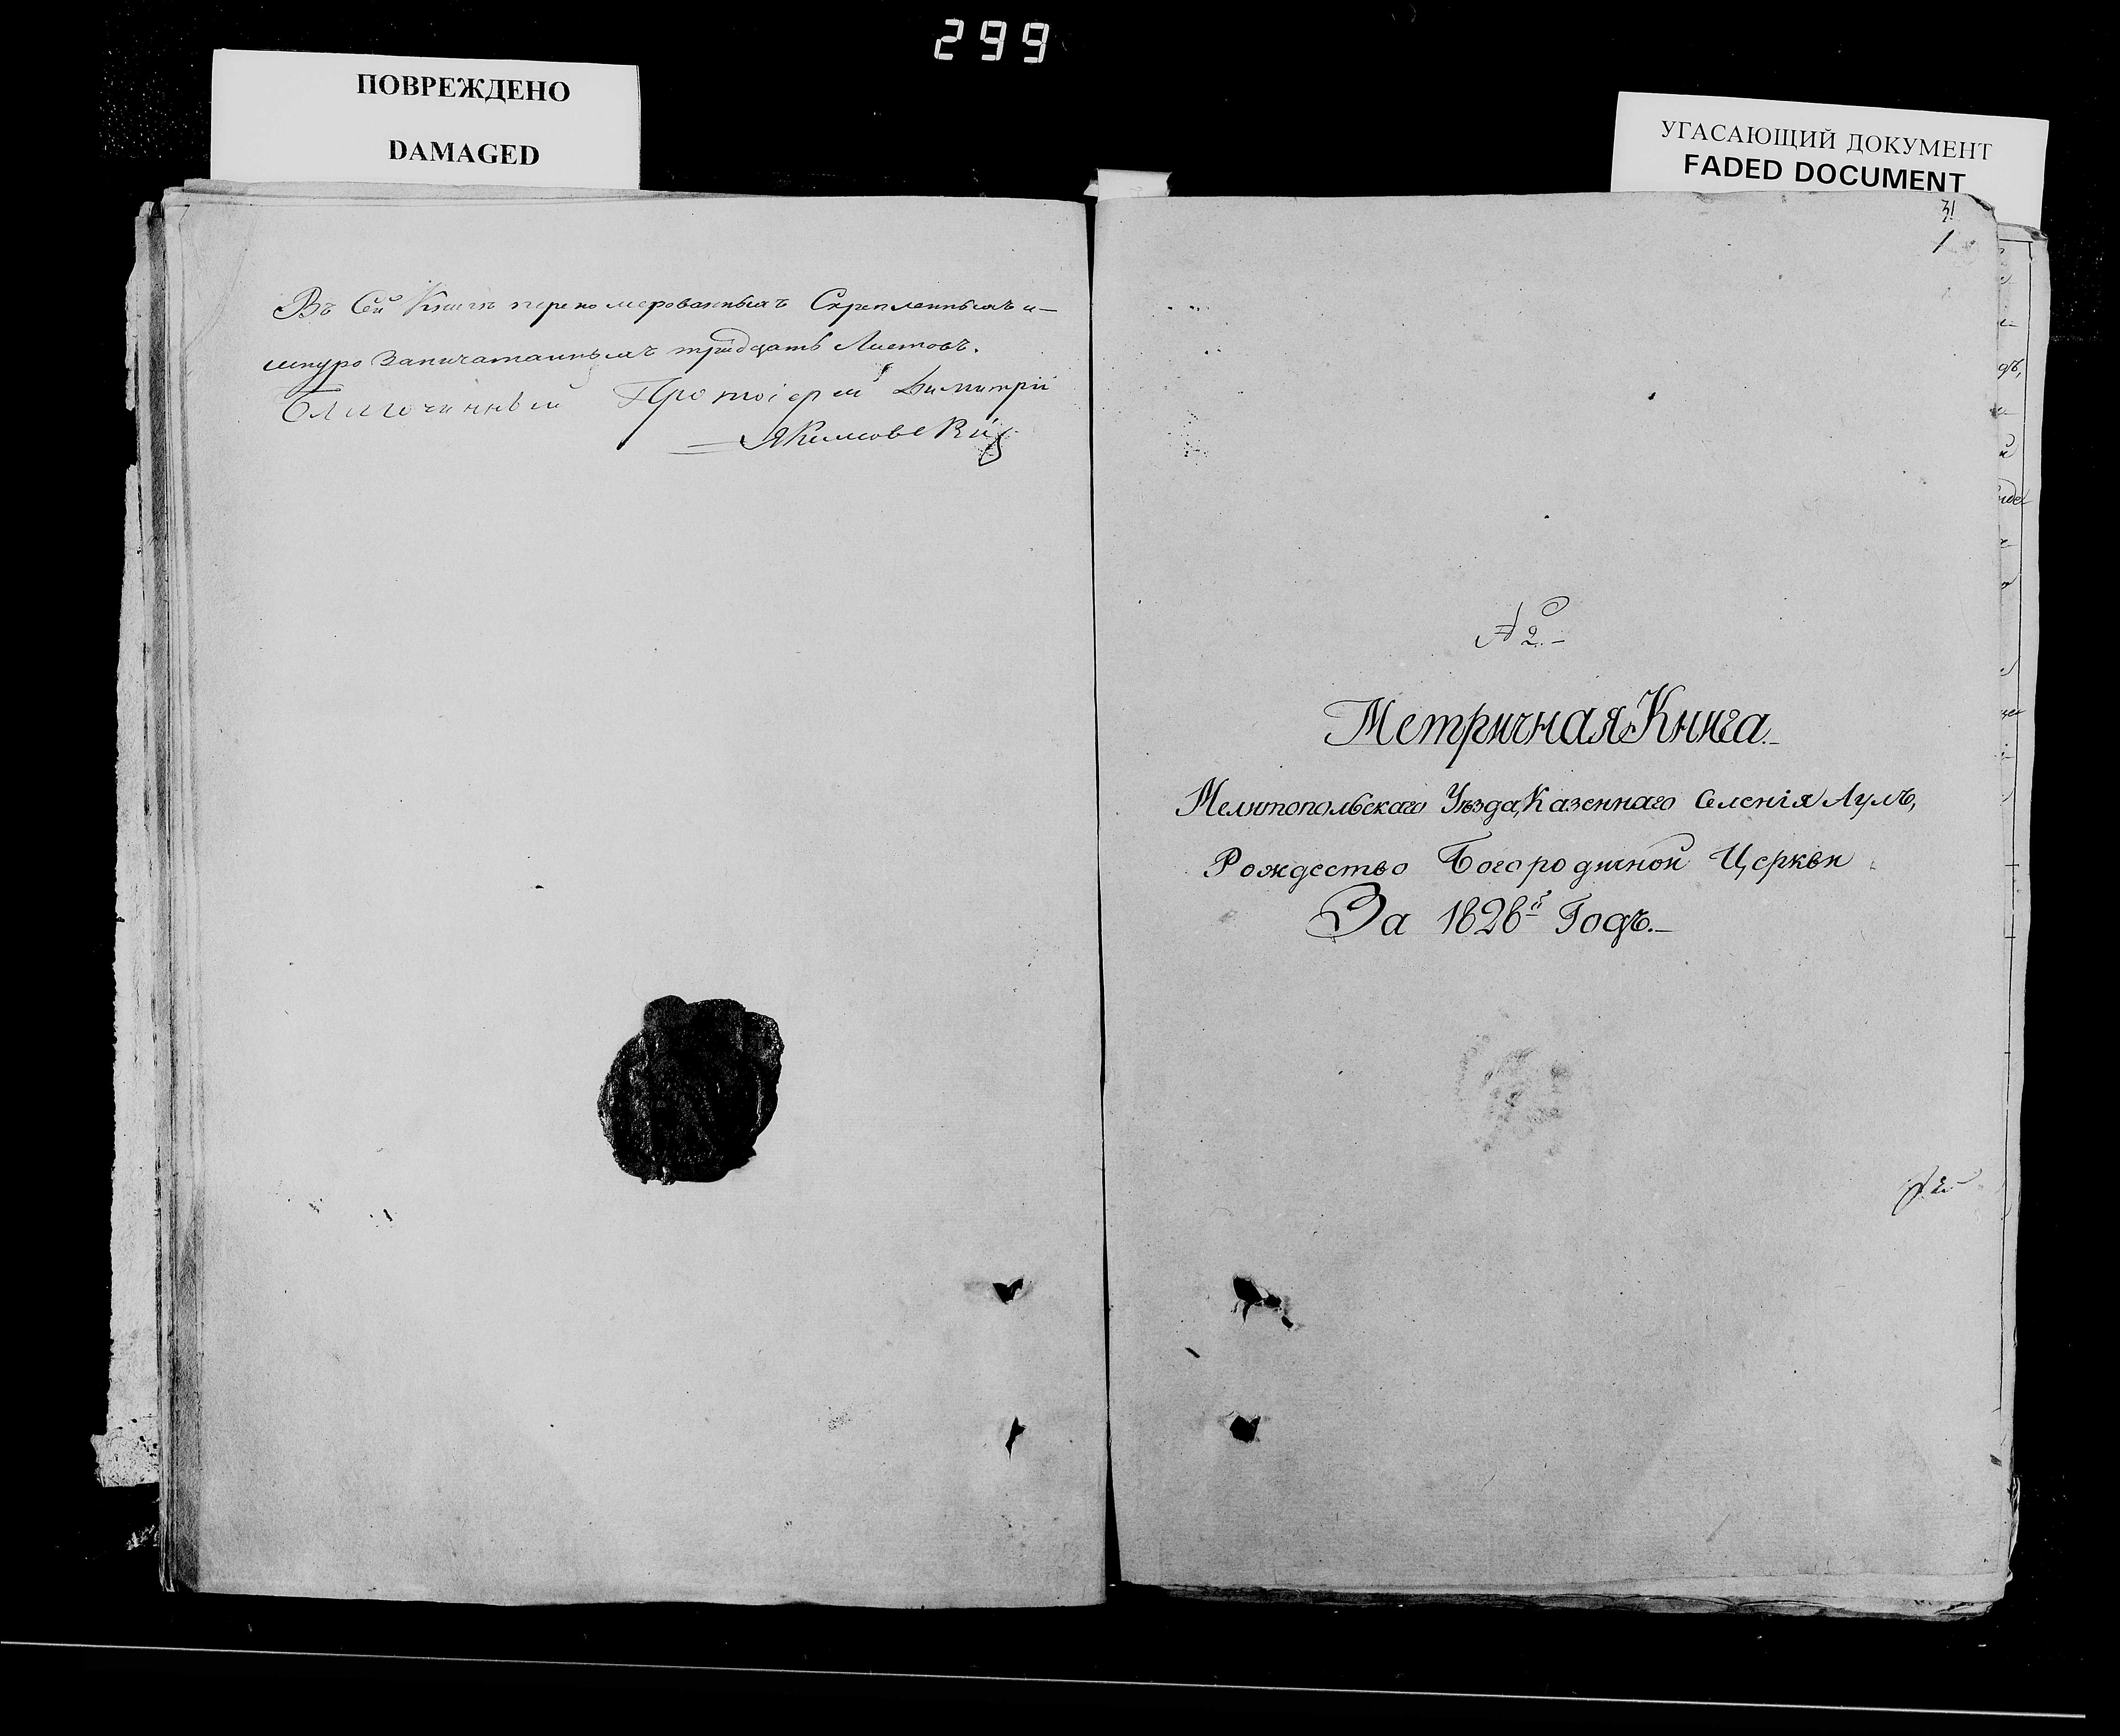 299
ПОВРЕЖДЕНО
DAMAGED
УГАСАЮЩИЙ ДОКУМЕНТ
FADED DOCUMENT
Въ Сей Книги переномерованныхъ Скрепленныхъ и
шнуро Запичатанныхъ тридцать Листовъ.
Благочинный Протоіерей Димитрій
Якимовскій
31
1
№ 2.
Метричная Книга.
Мелитопольскаго Уѣзда, Казеннаго Селенія
Рождество Богородичной Церкви
За 1828й Годъ.